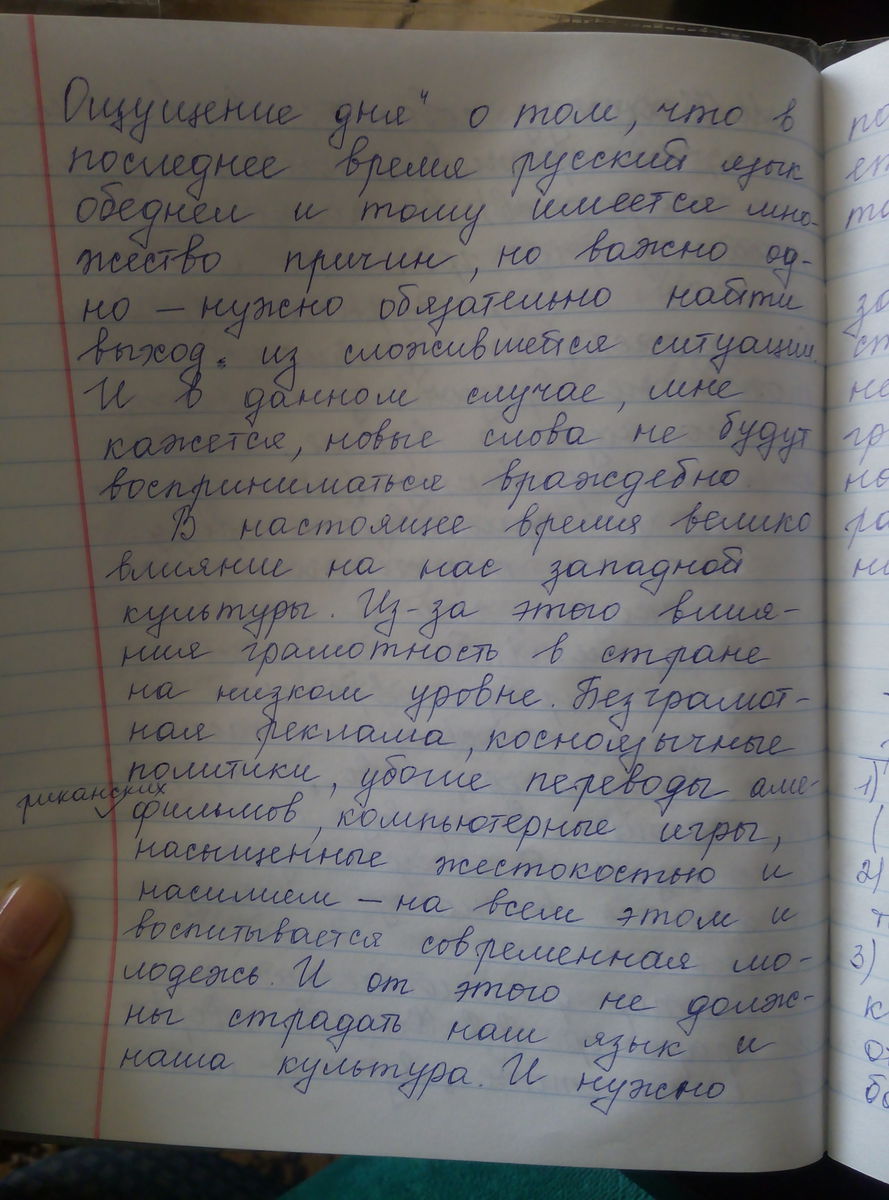 Ощущение дня" о том, что в
последнее время русский язык
обеднел и тому имеется мно-
жество причин, но важно од-
но – нужно обязательно найти
выход из сложившейся ситуации.
И в данном случае, мне
кажется, новые слова не будут
восприниматься враждебно.
В настоящее время велико
влияние на нас западной
культуры. Из-за этого влия-
ния грамотность в стране
на низком уровне. Безграмот-
ная реклама, косноязычные
политики, убогие переводы аме-
риканских фильмов, компьютерные игры,
насыщенные жестокостью и
насилием – на всем этом и
воспитывается современная мо-
лодежь. И от этого не долж-
ны страдать наш язык и
наша культура. И нужно
1)
2)
3)